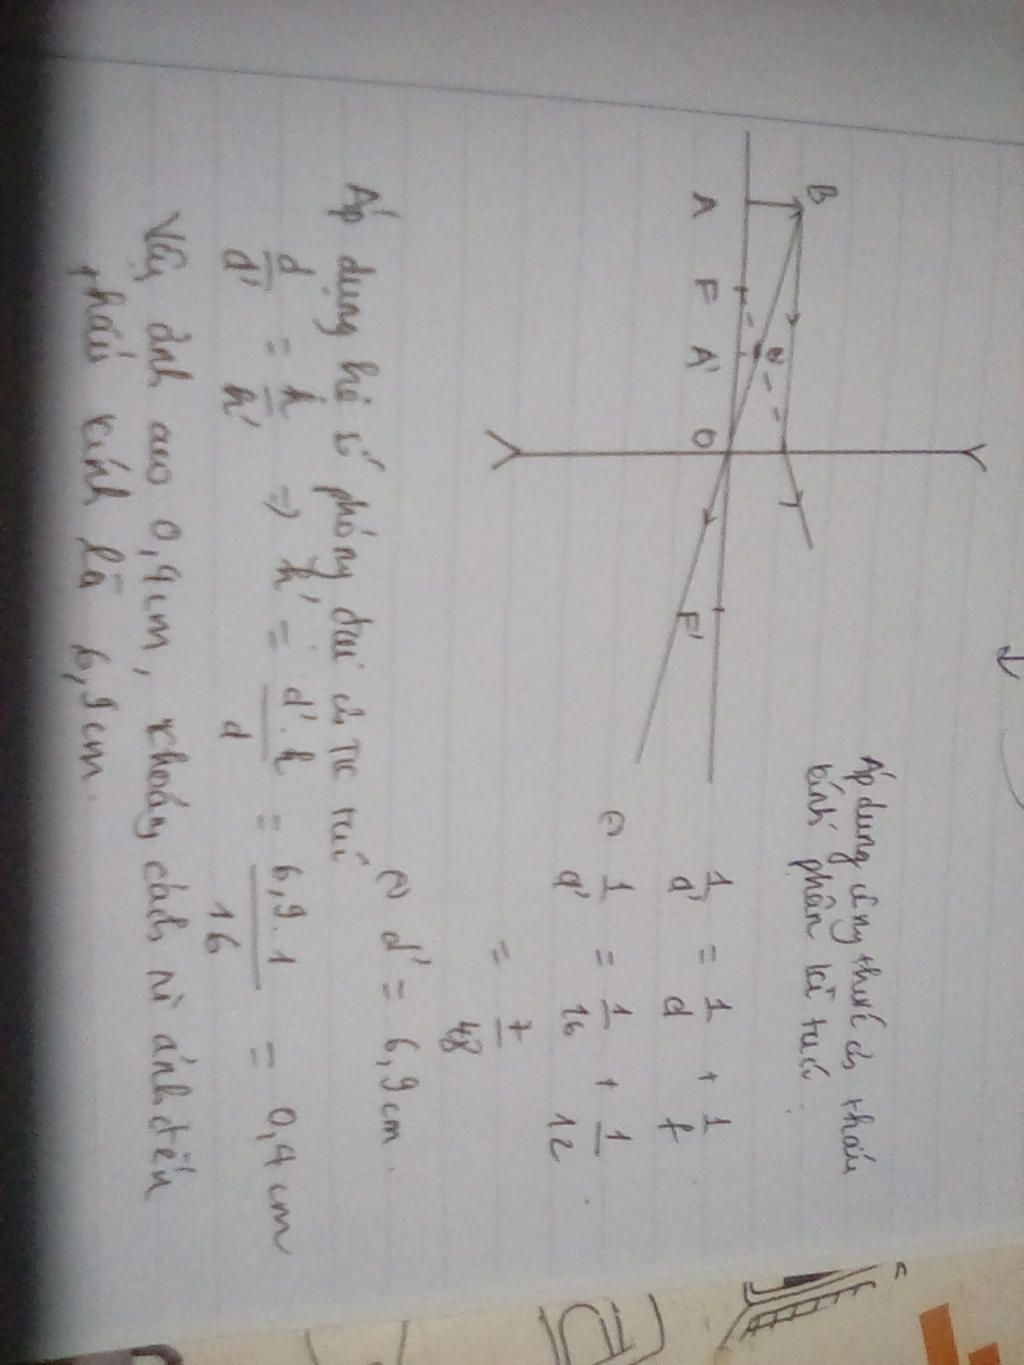 B
A F A' O F'
Áp dụng công thức của thấu
kính phân kì ta có:
1/d' = 1/d + 1/f
⇔ 1/d' = 1/16 + 1/12
= 7/48
⇔ d' = 6,9cm.
Áp dụng hệ số phóng đại
d/d' = h/h' => h' = d'.h/d = 6,9.1/16 = 0,4cm
Vậy ảnh cao 0,4cm, khoảng cách từ ảnh đến
thấu kính là 6,9cm.